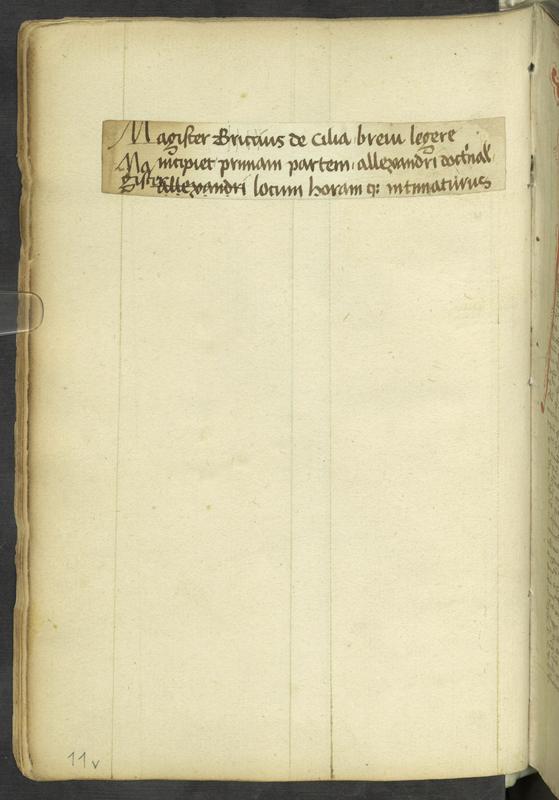 Magister Briccius de Cilia brevi legere
incipiet primam partem allexandri doct'nal'
Magister
allexandri locum horam q: intimaturus
11v